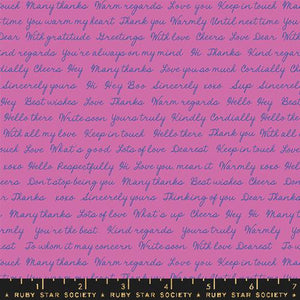 ouch Many thanks Warm regards Love you Keep in touch Many
time You warm my heart Thank you Warmly Until next time You
Dear With gratitude Greetings With love Cheers Love Dear With
ind regards You're always on my mind Hi Thanks Kind regar
dially Cheers Hey Many thanks Love you so much Cordially C
Sincerely yours Hi Hey Boo Sincerely xoxo Sup Sincerel
Hey Best wishes Love Thanks Warm regards Hello Hey
Hello there Write soon Yours truly Kindly Cordially Hello the
With all my love Keep in touch Hello there Thank you With all
ouch Love What's good Lots of love Dearest Keep in touch Lo
xoxo Hello Respectfully Hi Love you mean it Warmly xoxo He
eers Don't stop being you Many thanks Best wishes Cheers Don
r Thanks xoxo Sincerely yours Thinking of you Dear Thanks
Many thanks Lots of love What's up Cheers Hey Hi Many
rmly You're the best Kind regards Yours truly Warmly
est To whom it may concern Write soon With love Dearest To
n touch Many thanks Warm regards Love you Keep in touch M
1 2 3 4 5 6 7
RUBY STAR SOCIETY RUBY STAR SOCIETY RUBY STAR SOCIETY